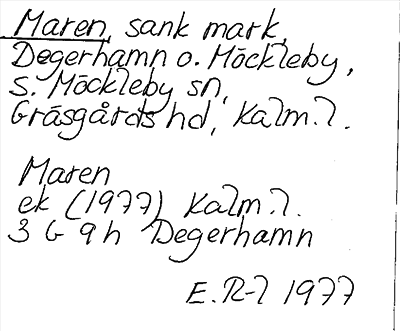 Maren, sank mark,
Degerhamn o. Möckleby,
S. Möckleby sn,
Gräsgårds hd, Kalm.l.
Maren
ek (1977) Kalm.l.
3 G 9h Degerhamn
E.R-l 1977